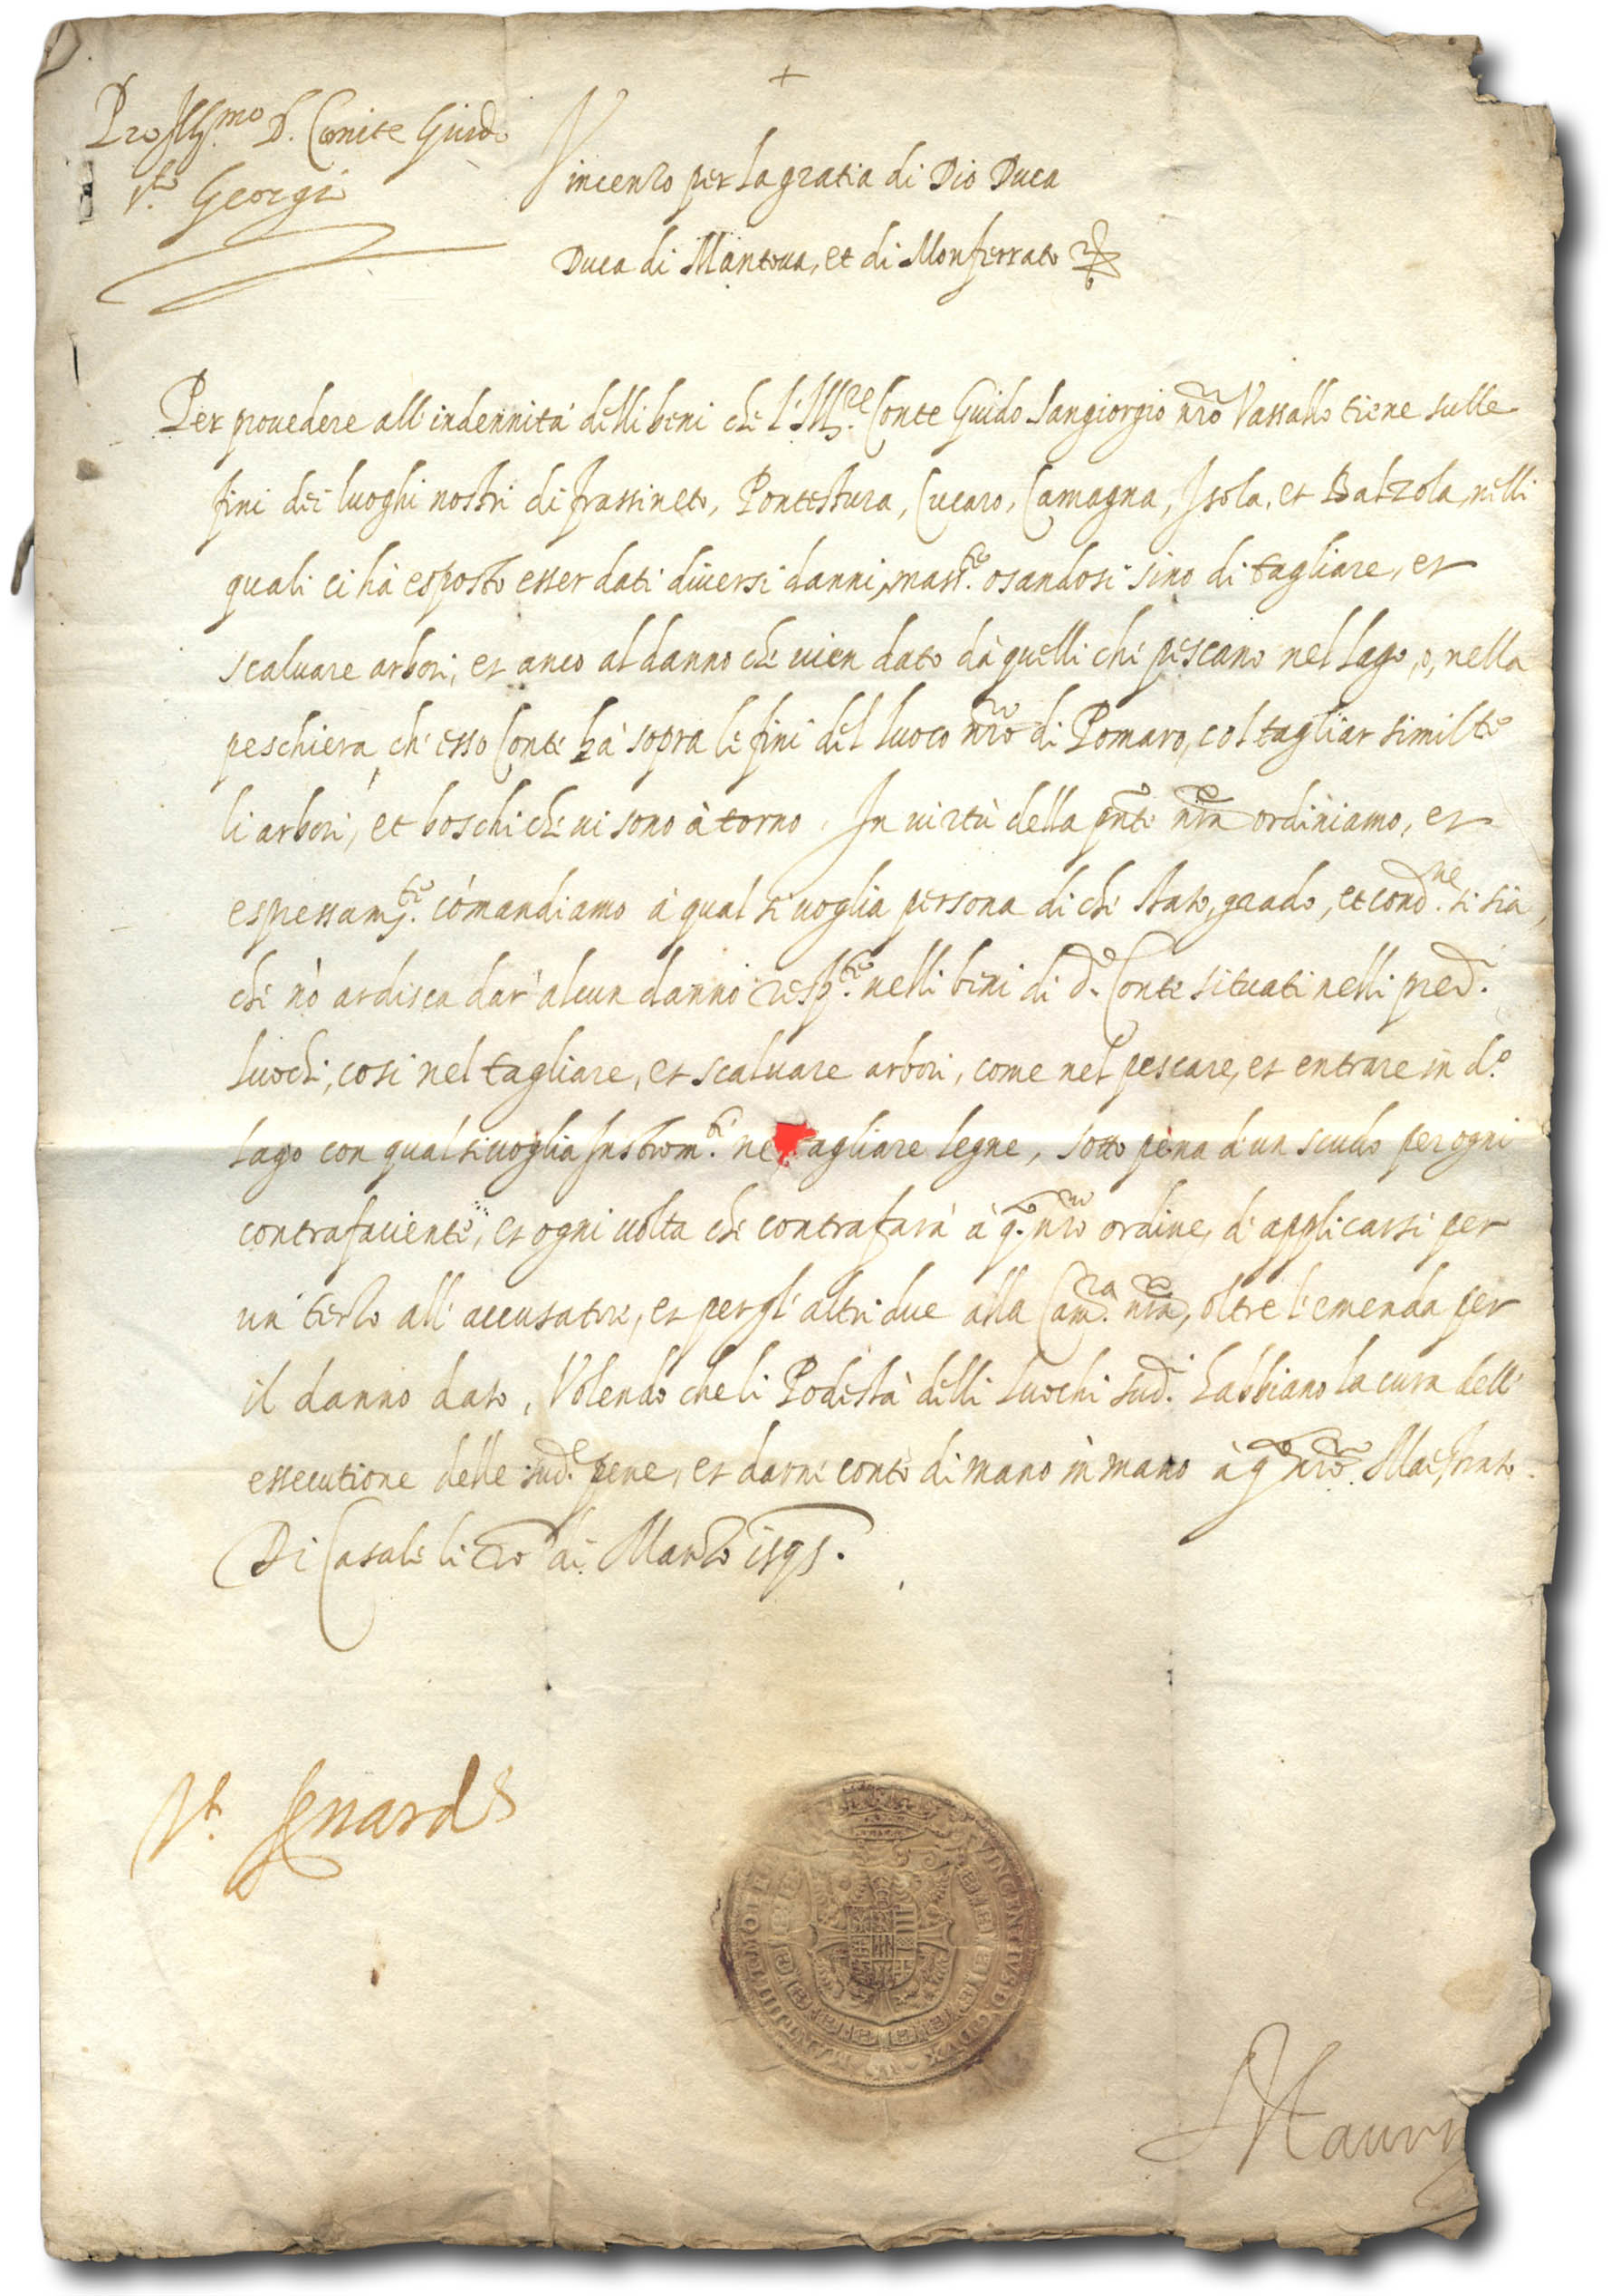 +
Pro Ill.mo D. Comite Guido
Georgi
Vincenzo per la gratia di Dio Duca
Duca di Mantoua, et di Monferrato
Per prouedere all' indennità delli beni che l' Ill.re Conte Guido Sangiorgio nro Vassallo tiene sulle
fini dei luoghi nostri di frassineto, Pontestura, Cucaro, Camagna, Isola, et Balzola, nelli
quali ci hà esposto esser dati diuersi danni, mass.te osandosi sino di tagliare, et
scaluare arbori, et anco al danno che uien dato dà quelli che pescano nel lago, o, nella
peschiera ch' esso Conte hà sopra le fini del luoco nro di Pomaro, col tagliar similte
li arbori, et boschi che ui sono à torno. In uirtù della pnte nra ordiniamo, et
espressam.te comandiamo à qual si uoglia persona di che stato, grado, et cond.ne si sia,
che nò ardisca dar' alcun danno resp.te nelli beni di d.o Conte situati nelli pred.i
luochi, cosi nel tagliare, et scaluare arbori, come nel pescare, et entrare in d.o
lago con qual si uoglia Instrom.ti ne tagliare legne, sotto pena d'un scudo per ogni
contrafaciente, et ogni uolta che contrafarà à q.to nro ordine, d' applicarsi per
un' terzo all' accusatore, et per gl' altri due alla Cam.ra nra, oltre l' emenda per
il danno dato, Volendo che li Podestà delli luochi sud.i habbiano la cura dell'
essecutione delle sud.e pene, et darne conto di mano in mano à q.to nro Maestrato.
Di Casale li di Marzo 1595.
V.t
VINCENTIVS D G DVX MANT IIII